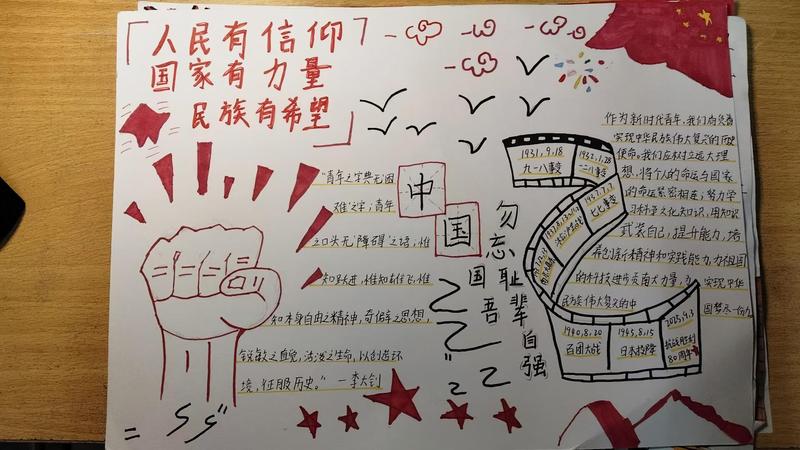 「人民有信仰
国家有力量
民族有希望」
"青年之字典无"困
难"之字,青年
之口头无"障碍"之语,惟
知跃进,惟知雄飞,惟
知本身自由之精神,奇僻之思想,
锐敏之直觉,活泼之生命,以创造环
境,征服历史。"—李大钊
中
国
勿忘国耻
吾辈自强
1931,9,18
九一八事变
1932,1,28
一二八事变
1937,7,7
七七事变
1940,8,20
百团大战
1945,8,15
日本投降
2025,9,3
抗战胜利
80周年
作为新时代青年,我们肩负着
实现中华民族伟大复兴的历史
使命。我们应树立远大理
想,将个人的命运与国家
的命运紧密相连;努力学
习科学文化知识,用知识
武装自己,提升能力,培
养创新精神和实践能力,为祖国
的科技进步贡献力量,为实现中华
民族伟大复兴的中
国梦尽一份力